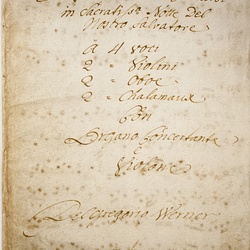 in sacratissa Notte del
Nostro Salvatore
à 4 voci
2 Violini
2 = Oboe =
2 = Chalamaux
Con
Organo Concertante
e
Violone
Del Gregorio Werner